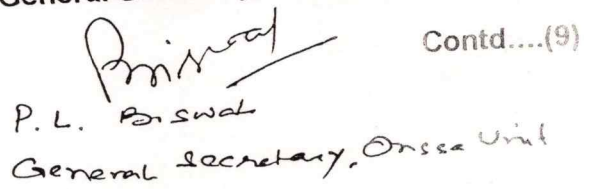 General
Contd....(9)
P. L. Biswal
General Secretary, Orissa Unit